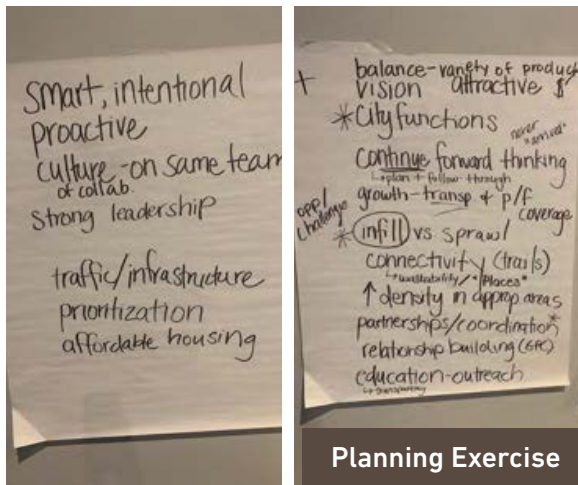 smart, intentional
proactive
culture - on same team
of collab.
strong leadership
traffic/infrastructure
prioritization
affordable housing
+
balance - variety of product
vision attractive $
*City functions
never "arrived"
continue forward thinking
↳ plan + follow through
growth - transp + p/f
coverage
opp/
challenge
* infill vs sprawl
connectivity (trails)
↳ walkability / "Places"
↑ density in approp areas
partnerships/coordination*
relationship building (GPC)
education - outreach
↳ transparency
Planning Exercise